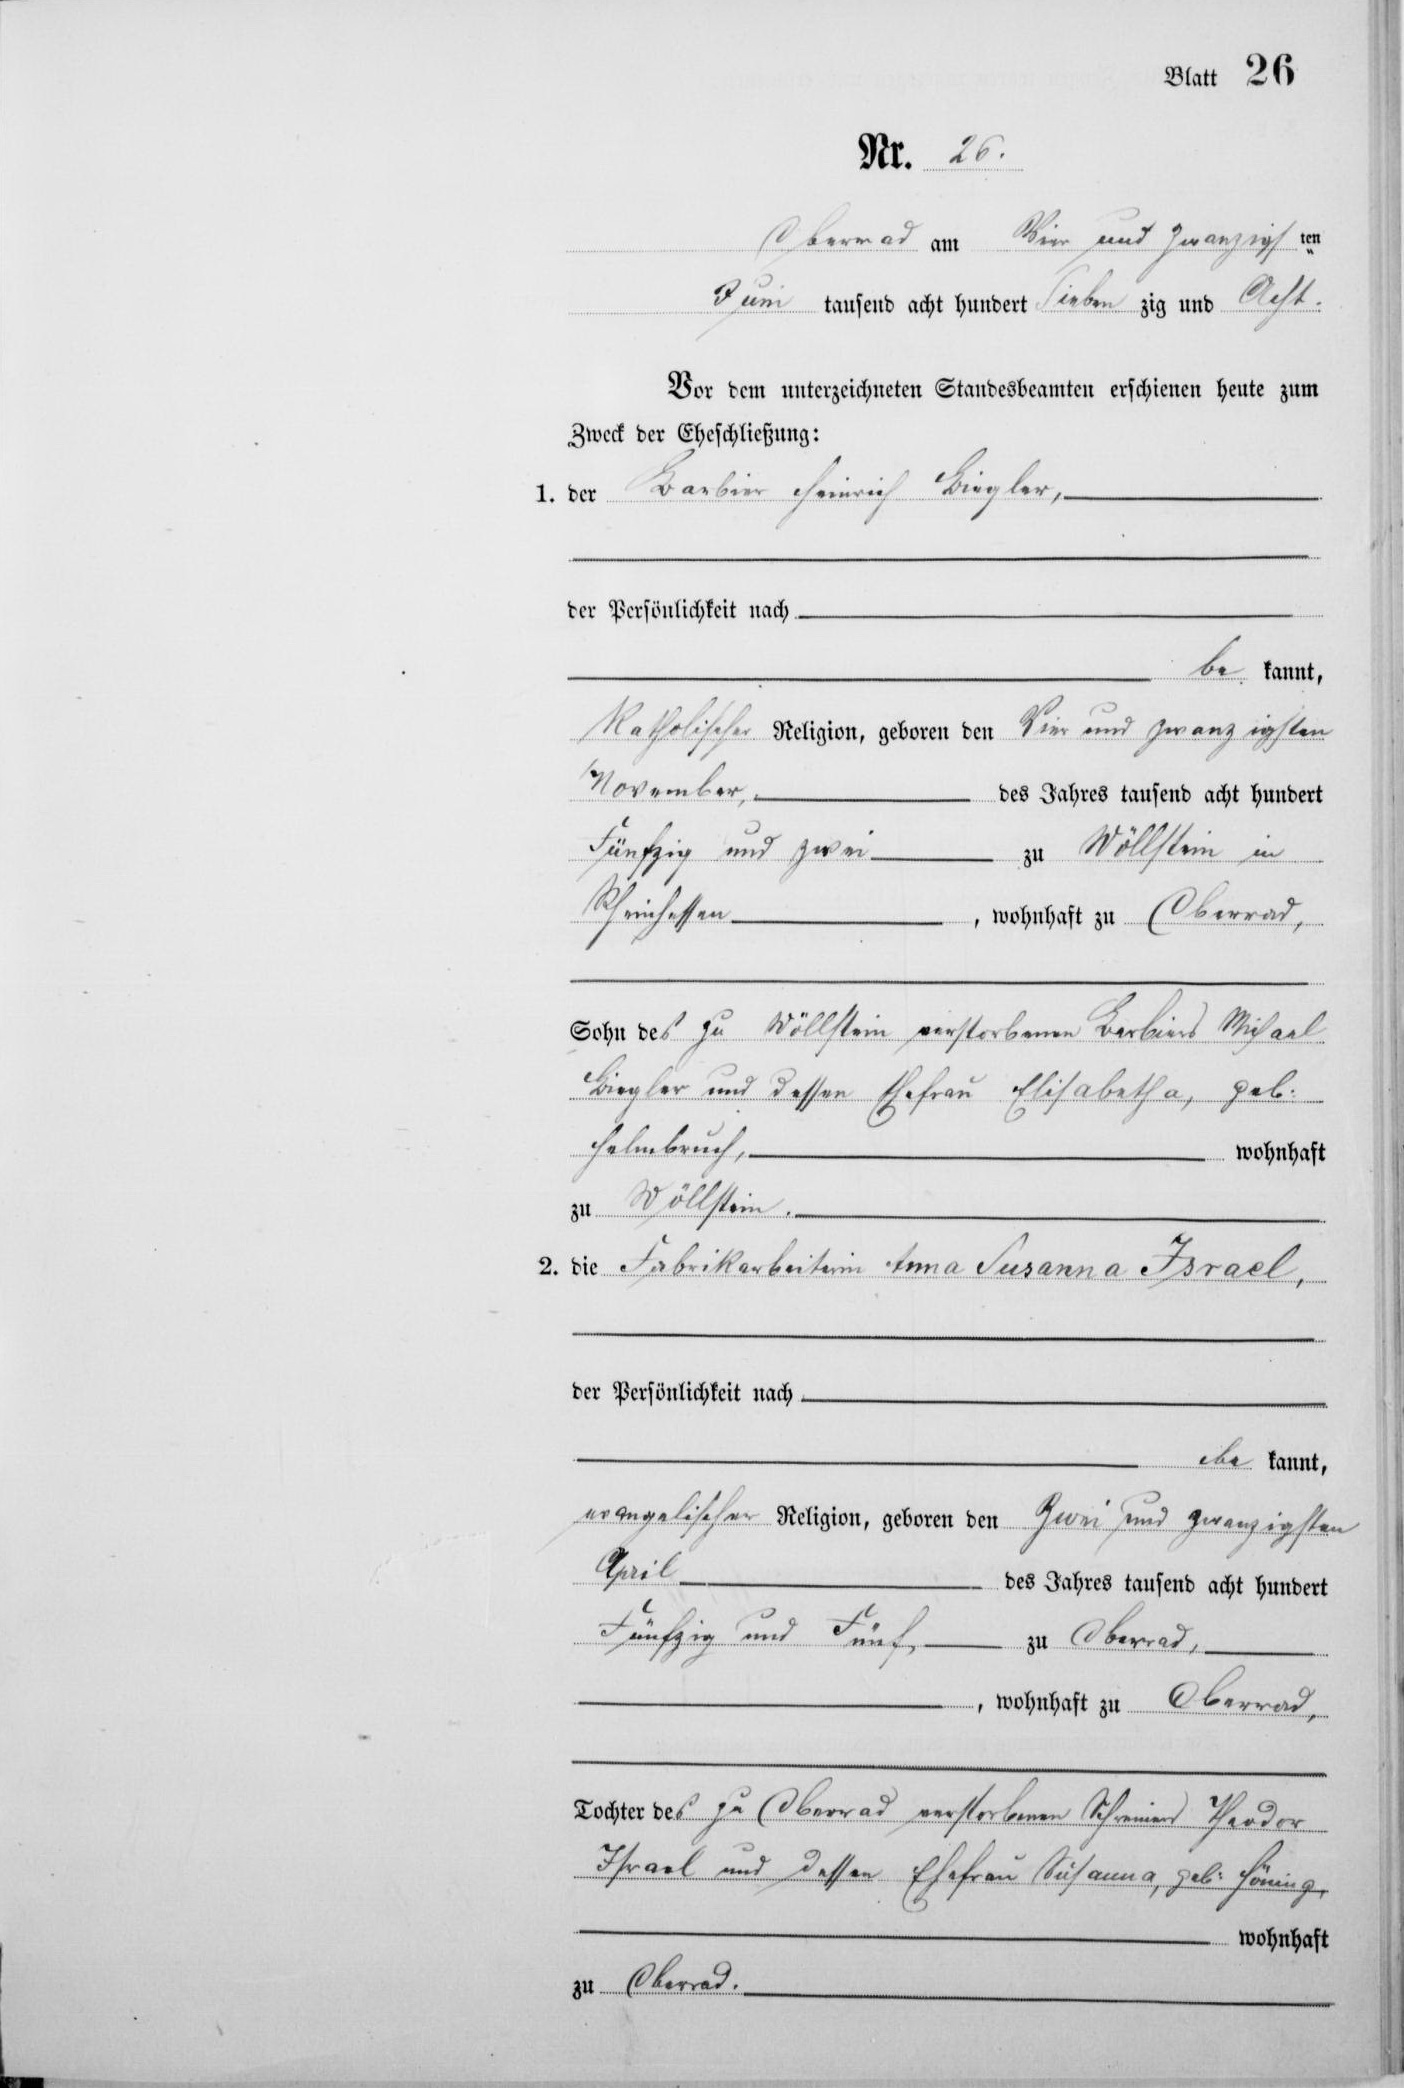 Blatt 26
Nr. 26.
Oberrad am Vier und zwanzigs ten
Juni tausend acht hundert Sieben zig und Acht.
Vor dem unterzeichneten Standesbeamten erschienen heute zum
Zweck der Eheschließung:
1. der Barbier Heinrich Biegler,
der Persönlichkeit nach
be kannt,
Katholischer Religion, geboren den Vier und zwanzigsten
November, des Jahres tausend acht hundert
Fünfzig und zwei zu Wöllstein in
Rheinhessen, wohnhaft zu Oberrad,
Sohn des zu Wöllstein verstorbenen Barbiers Michael
Biegler und dessen Ehefrau Elisabetha, geb:
wohnhaft
zu Wöllstein.
2. die Fabrikarbeiterin Anna Susanna Israel,
der Persönlichkeit nach
be kannt,
evangelischer Religion, geboren den Zwei und zwanzigsten
April des Jahres tausend acht hundert
Fünfzig und Fünf, zu Oberrad,
, wohnhaft zu Oberrad,
Tochter des zu Oberrad verstorbenen Schreiners Theodor
Israel und dessen Ehefrau Susanna, geb: Höning,
wohnhaft
zu Oberrad.